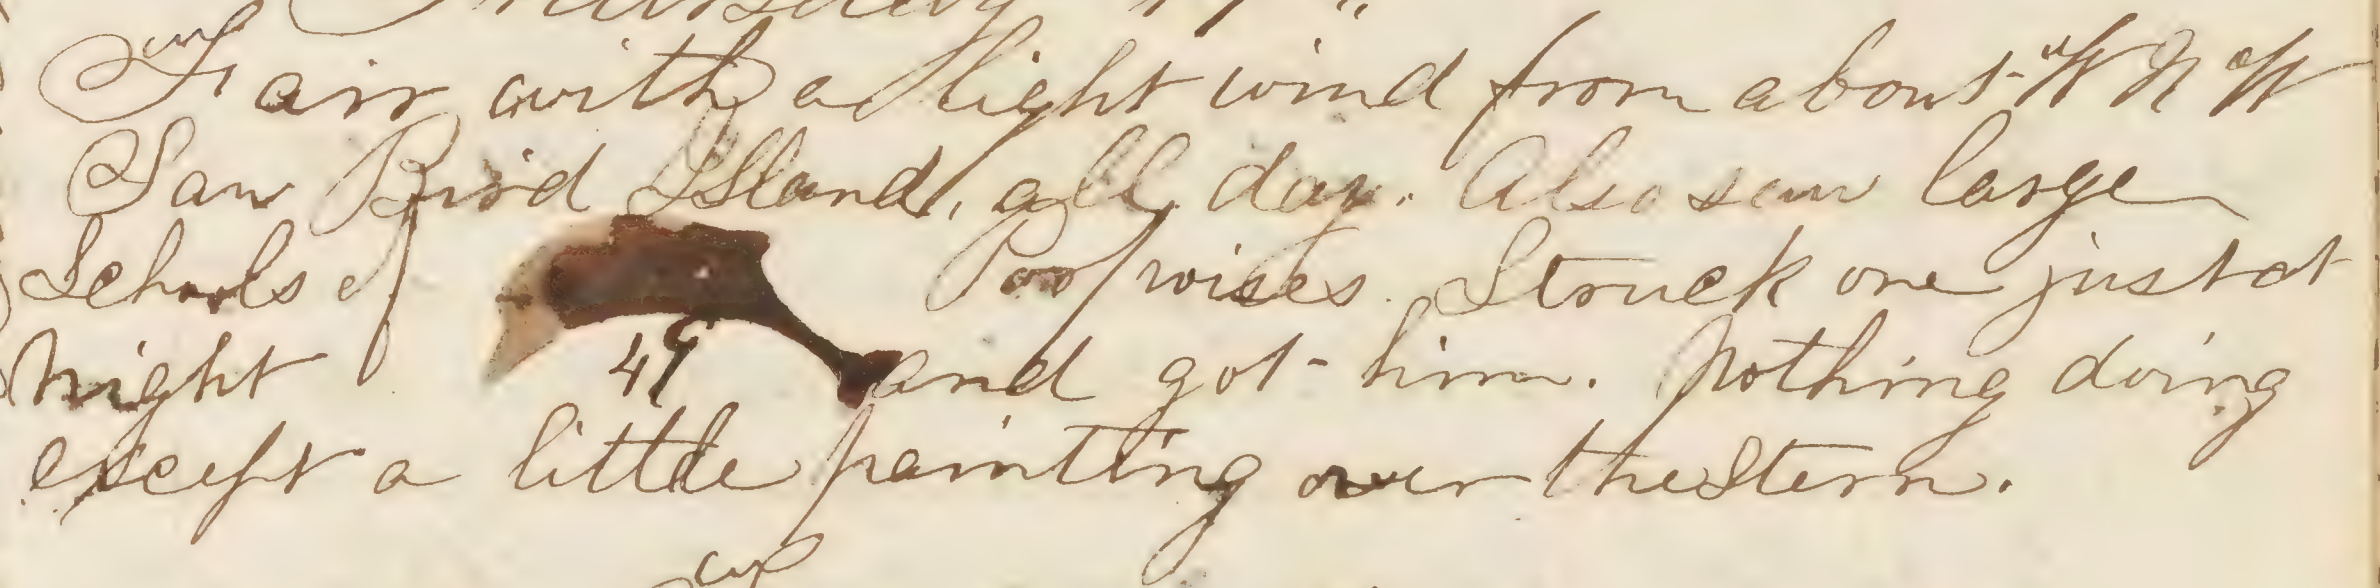 Thursday 19"
Fair with a light wind from about W N W
Saw Bird Island, all day. Also saw large
Schools of Porpoises. Struck one just at
night 49 and got him. Nothing doing
except a little painting over the Stern.